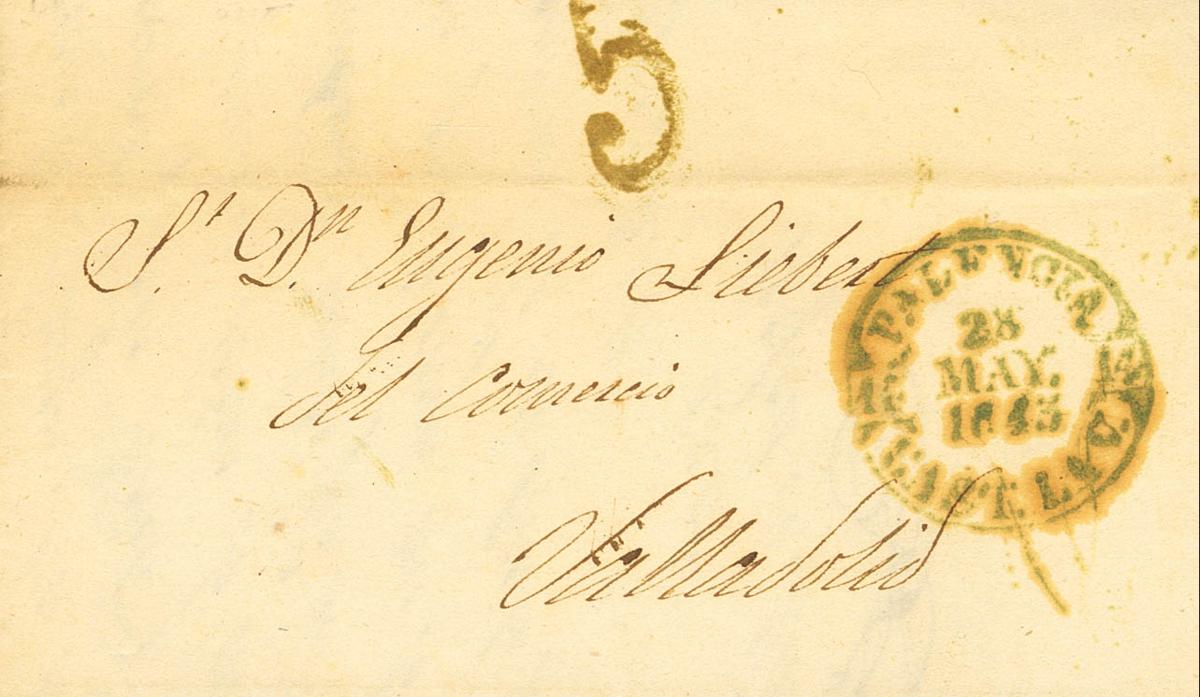 5
S.r D.n Eugenio Siebert
Del Comercio
Valladolid
PALENCIA
28
MAY.
1843
CAST. LA V.